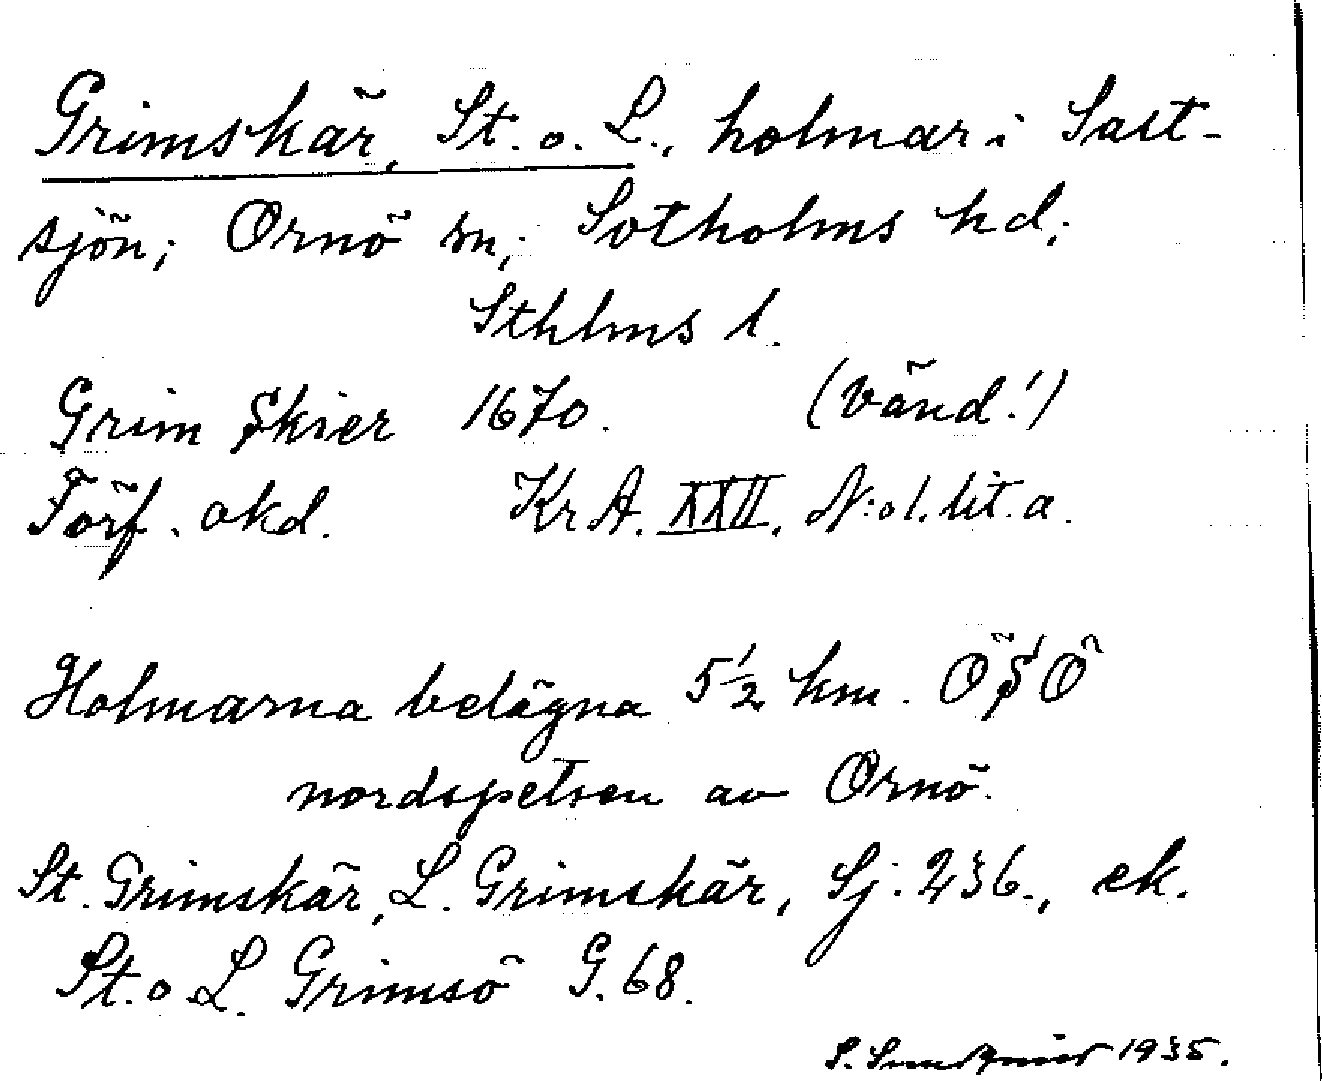 Grimskär, St. o. L., holmar i Salt-
sjön; Ornö sn; Sotholms hd;
Sthlms l.
Grim Skier 1670. (vänd!)
Förf. okd. Kr A. XXII. N:o 1. lit. a.
Holmarna belägna 5½ km. ÖSÖ
nordspetsen av Ornö.
St. Grimskär, L. Grimskär, Sj. 236., ek.
St. o L. Grimsö G. 68.
S. 1935.